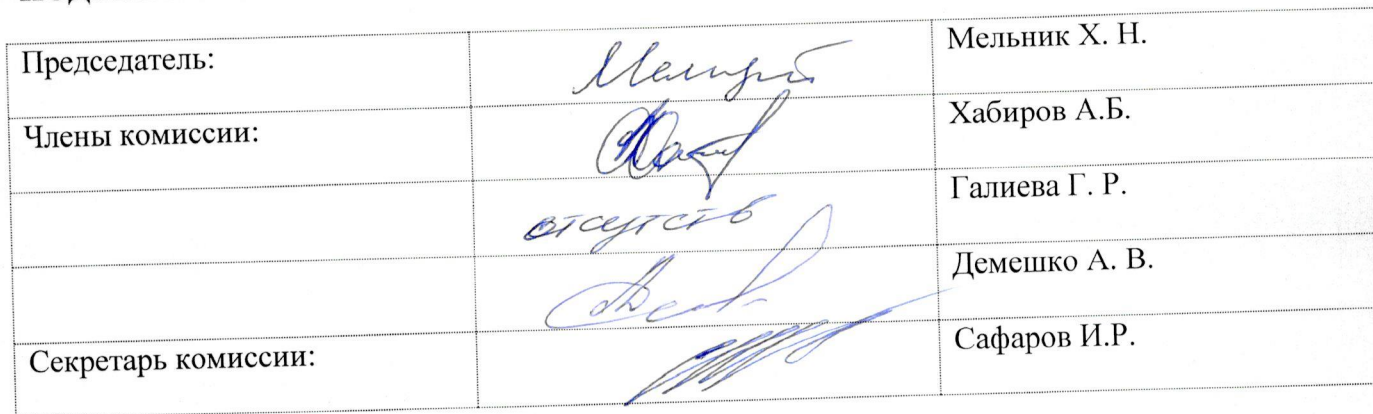 Председатель: Мельник Х. Н.
Члены комиссии: Хабиров А.Б.
отсутств Галиева Г. Р.
Демешко А. В.
Секретарь комиссии: Сафаров И.Р.